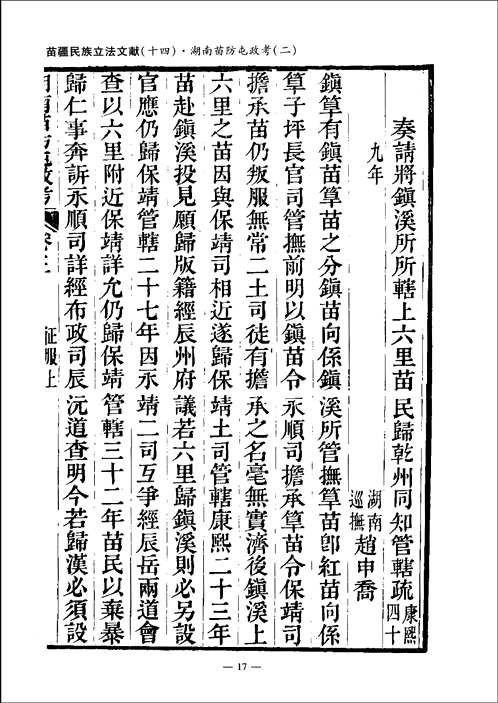 苗疆民族立法文献(十四)·湖南苗防屯政考(二)
奏請將鎭溪所所轄上六里苗民歸乾州同知管轄疏 康熙四十
九年
湖南巡撫趙申喬
鎭筸有鎭苗筸苗之分鎭苗向係鎭溪所管撫筸苗卽紅苗向係
筸子坪長官司管撫前明以鎭苗令永順司擔承筸苗令保靖司
擔承苗仍叛服無常二土司徒有擔承之名毫無實濟後鎭溪上
六里之苗因與保靖司相近遂歸保靖土司管轄康熙二十三年
苗赴鎭溪投見願歸版籍經辰州府議若六里歸鎭溪則必另設
官應仍歸保靖管轄二十七年因永靖二司互爭經辰岳兩道會
查以六里附近保靖詳允仍歸保靖管轄三十二年苗民以棄暴
歸仁事奔訴永順司詳經布政司辰沅道查明今若歸漢必須設
湖南苗防屯政考 卷三 征服上
— 17 —